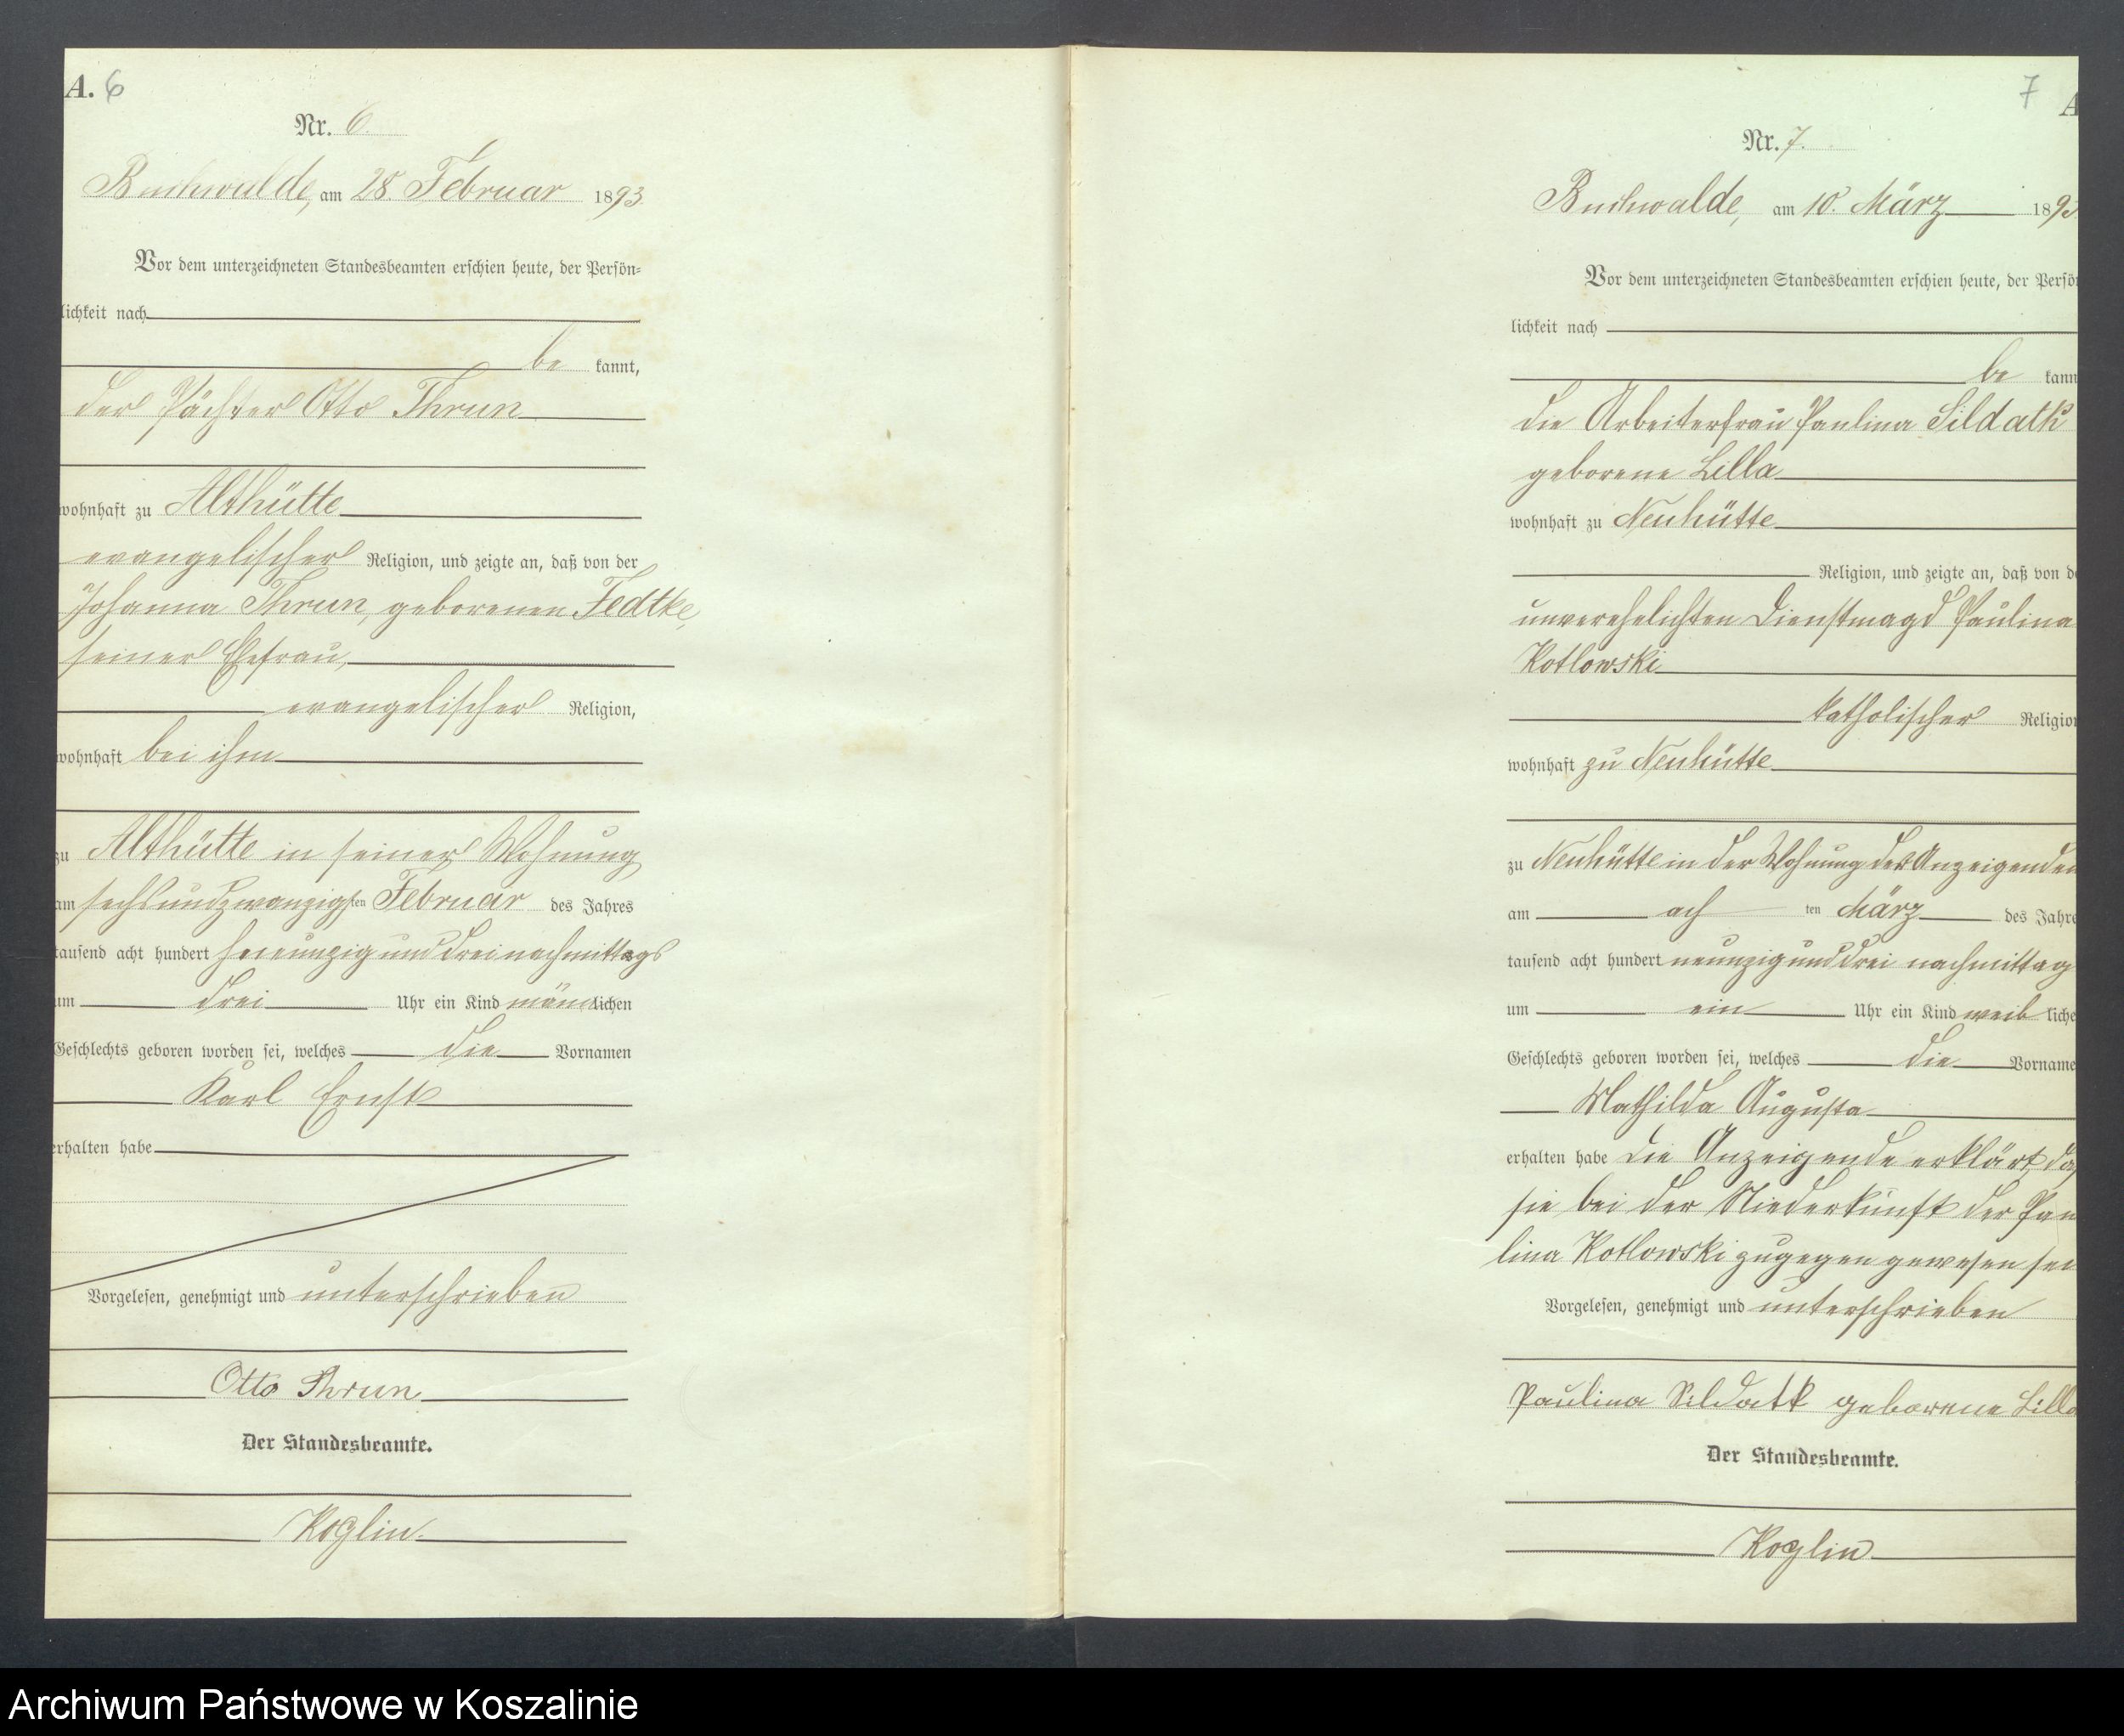 A. 6
Nr. 6.
Buchwalde, am 28. Februar 1893.
Vor dem unterzeichneten Standesbeamten erschien heute, der Persön-
lichkeit nach
be kannt,
der Pächter Otto Thrun
wohnhaft zu Althütte
evangelischer Religion, und zeigte an, daß von der
Johanna Thrun, geborenen Fedtke,
seiner Ehefrau,
evangelischer Religion,
wohnhaft bei ihm
zu Althütte in seiner Wohnung
am sechsundzwanzigsten Februar des Jahres
tausend acht hundert neunzig und drei nachmittags
um drei Uhr ein Kind männlichen
Geschlechts geboren worden sei, welches die Vornamen
Karl Ernst
erhalten habe
Vorgelesen, genehmigt und unterschrieben
Otto Thrun
Der Standesbeamte.
Koglin.
7 A
Nr. 7.
Buchwalde, am 10. März 189
Vor dem unterzeichneten Standesbeamten erschien heute, der Persö
lichkeit nach
be kann
die Arbeiterfrau Paulina Sildatk
geborene Lilla
wohnhaft zu Neuhütte
Religion, und zeigte an, daß von de
unverehelichten Dienstmagd Paulina
Kotlowski
katholischer Religion
wohnhaft zu Neuhütte
zu Neuhütte in der Wohnung der Anzeigenden
am ach ten März des Jahre
tausend acht hundert neunzig und drei nachmittag
um ein Uhr ein Kind weib liche
Geschlechts geboren worden sei, welches die Vorname
Mathilda Augusta
erhalten habe die Anzeigende erklärt, da
sie bei der Niederkunft der Pau
lina Kotlowski zugegen gewesen sei
Vorgelesen, genehmigt und unterschrieben
Paulina Sildatk geborene Lilla
Der Standesbeamte.
Koglin
Archiwum Państwowe w Koszalinie